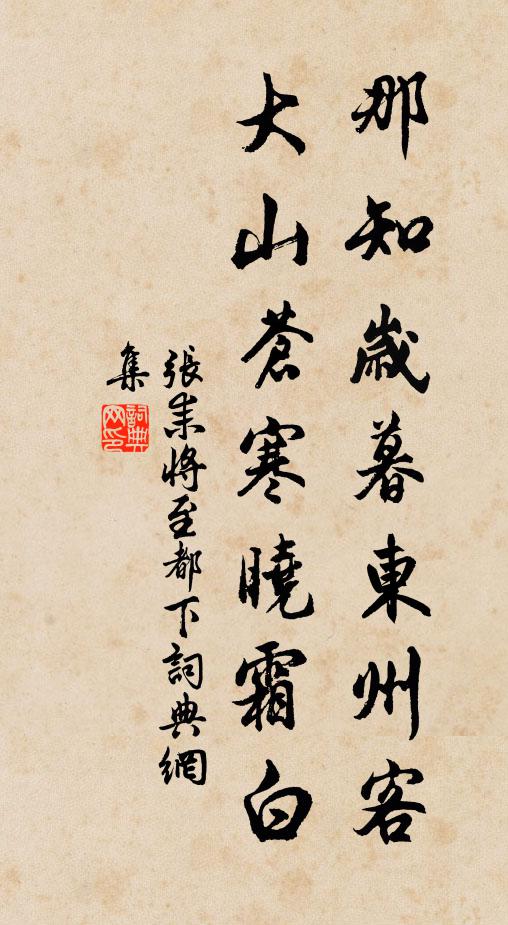 那知歲暮東州客
大山蒼寒曉霜白
張耒將至都下詞典網
集
詞典网印